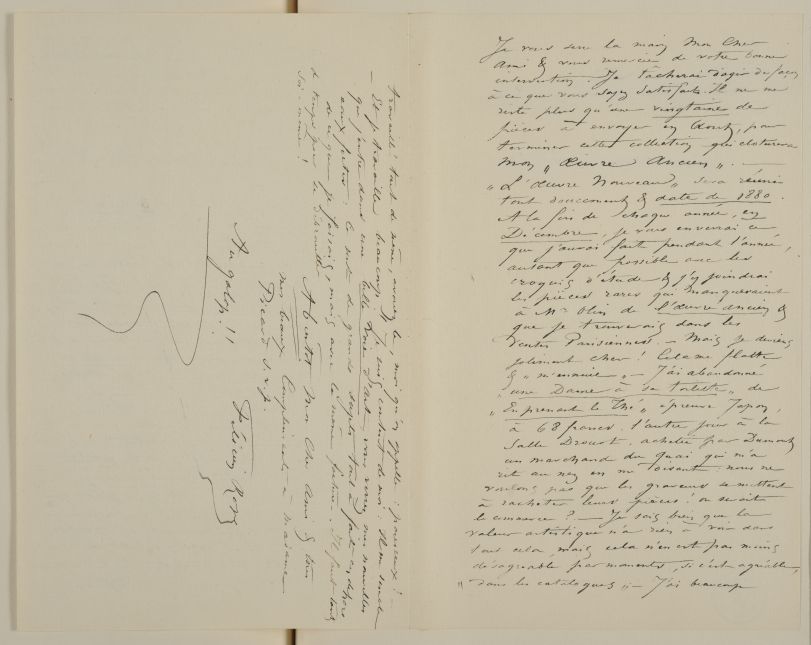 Je vous serre la main, Mon Cher
Ami & vous remercie de votre bonne
intervention. Je tâcherai d'agir de façon
à ce que vous soyez satisfaits. Il ne me
reste plus qu'une vingtaine de
pièces à envoyer en Août, pour
terminer cette collection qui cloturera
Mon „ Œuvre Ancien „ . —
„ L'Œuvre Nouveau „ sera réuni
tout doucement & date de 1880.
A la fin de chaque année, en
Décembre, je vous enverrai ce
que j'aurai fait pendant l'année,
autant que possible avec les
croquis d'étude & j'y joindrai
les pièces rares qui manqueraient
à Mr Olin de l'Œuvre ancien &
que je trouverais dans les
Ventes Parisiennes. — Mais je deviens
joliment cher ! Cela me flatte
& „ m'ennuie „ — J'ai abandonné
„ une Dame à sa toilette „ de
„ En prenant le Thé „ épreuve Japon,
à 68 francs. l'autre jour à la
Salle Drouot, achetée par Dumont
un marchand du quai qui m'a
rit au nez en me disant : nous ne
voulons pas que les graveurs se mettent
à racheter leurs pièces ! où serait
le commerce ? — Je sais bien que la
valeur artistique n'a rien à voir dans
tout cela, mais cela n'en est pas moins
désagréable par moments, si c'est agréable,
„ dans les catalogues „ — J'ai beaucoup
travaillé tout de même, avouez le, moi qu'on appelle : paresseux ! —
— Et je travaille beaucoup. Je suis content de moi. Il me semble
que j'entre dans une belle Voie d'art, vous verrez mes nouvelles
eaux fortes, le reste de grands sujets tout à fait en dehors
de ce que je faisais, mais avec la même facture. Il faut tout
de temps pour se débrouiller
soi-même !
A bientôt Mon Cher Ami & tous
mes beaux Compliments à Madame
Picard s.v.p.
Au galop !!
Félicien Rops